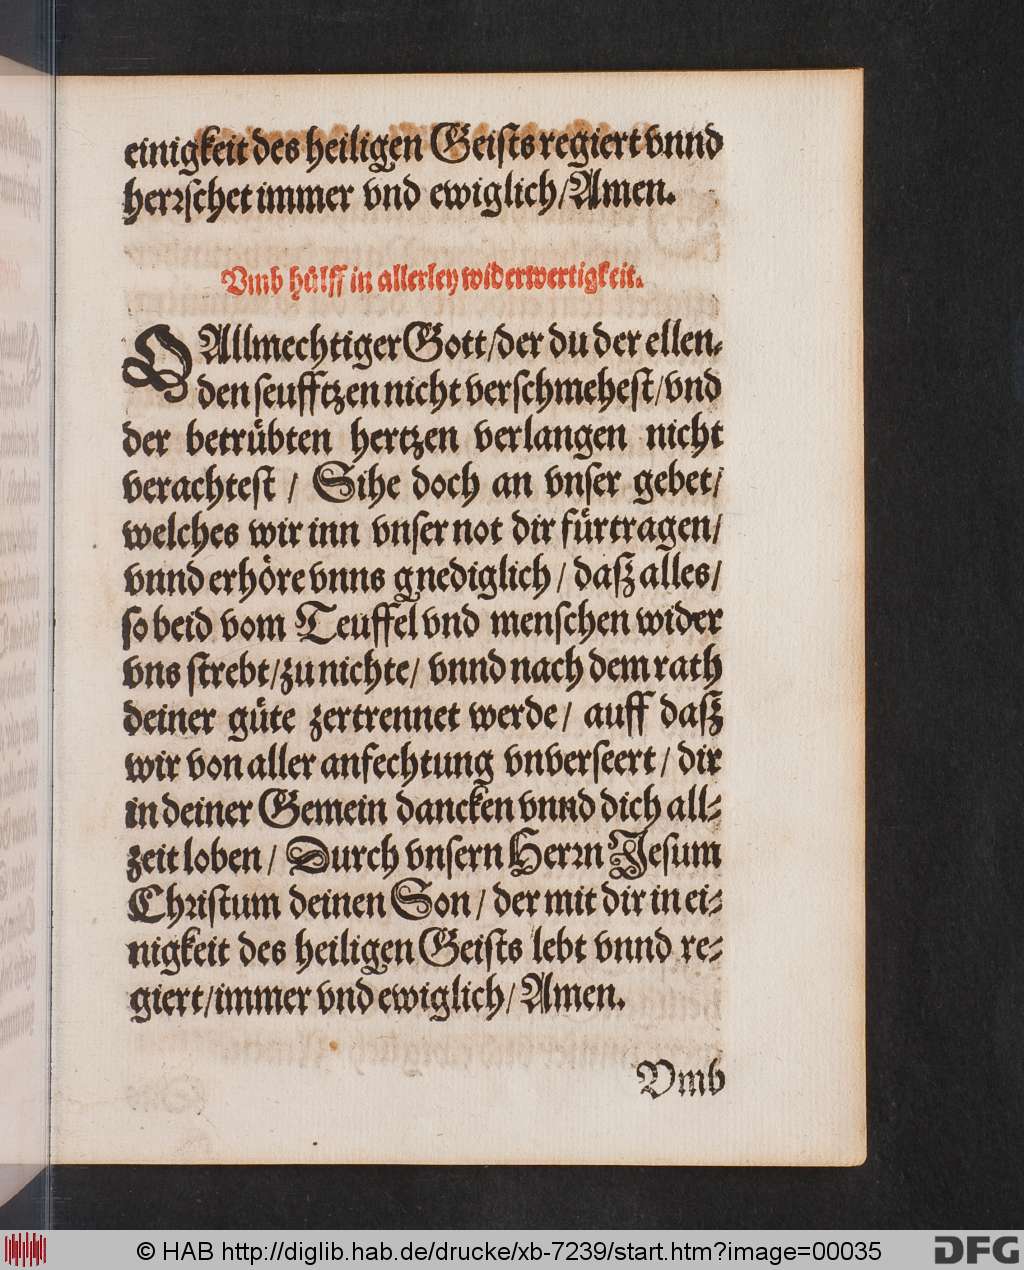 einigkeit des heiligen Geists regiert vnnd
herrschet immer vnd ewiglich/Amen.
Vmb hülff in allerley widerwertigkeit.
O Allmechtiger Gott/der du der ellen-
den seufftzen nicht verschmehest/vnd
der betrübten hertzen verlangen nicht
verachtest / Sihe doch an vnser gebet/
welches wir inn vnser not dir fürtragen/
vnnd erhöre vnns gnediglich / daß alles/
so beid vom Teuffel vnd menschen wider
vns strebt/zu nichte/ vnnd nach dem rath
deiner güte zertrennet werde / auff daß
wir von aller anfechtung vnverseert / dir
in deiner Gemein dancken vnnd dich all-
zeit loben / Durch vnsern Herrn Jesum
Christum deinen Son / der mit dir in ei-
nigkeit des heiligen Geists lebt vnnd re-
giert/immer vnd ewiglich/ Amen.
Vmb
© HAB http://diglib.hab.de/drucke/xb-7239/start.htm?image=00035
DFG